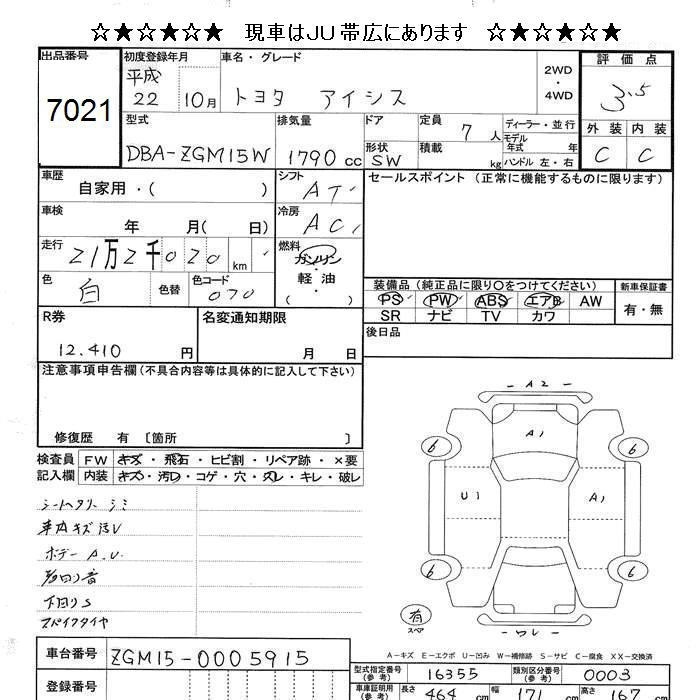 ☆★☆★☆★ 現車はJU帯広にあります ☆★☆★☆★
出品番号
7021
初度登録年月
平成
22 10月
車名・グレード
トヨタ アイシス
2WD
・
4WD
評価点
3.5
外装 内装
C C
型式
DBA-ZGM15W
排気量
1790 cc
ドア
形状
SW
定員
7 人
積載
kg
ディーラー・並行
モデル
年式 年
ハンドル 左・右
車歴
自家用・( )
シフト
AT
車検
年 月( 日)
冷房
AC
走行
21万2千020 km
燃料
ガソリン
・
軽油
( )
色
白
色替
色コード
070
セールスポイント (正常に機能するものに限ります)
装備品 (純正品に限り○をつけてください)
PS PW ABS エアB AW
SR ナビ TV カワ
新車保証書
有・無
後日品
R券
12,410 円
名変通知期限
月 日
注意事項申告欄(不具合内容等は具体的に記入して下さい)
修復歴 有 [箇所 ]
検査員
記入欄
FW キズ・飛石・ヒビ割・リペア跡・×要
内装 キズ・汚レ・コゲ・穴・スレ・キレ・破レ
シートヘタリ シミ
車内キズ汚レ
ボデー A.U.
下回りS
スパイクタイヤ
A2
A1
U1
A1
6
6
6
6
有
スペア
A-キズ E-エクボ U-凹み W-補修跡 S-サビ C-腐食 XX-交換済
車台番号
ZGM15-0005915
登録番号
型式指定番号
(参考)
16355
類別区分番号
(参考)
0003
車庫証明用
(参考)
長さ
464 cm
幅
171 cm
高さ
167 cm